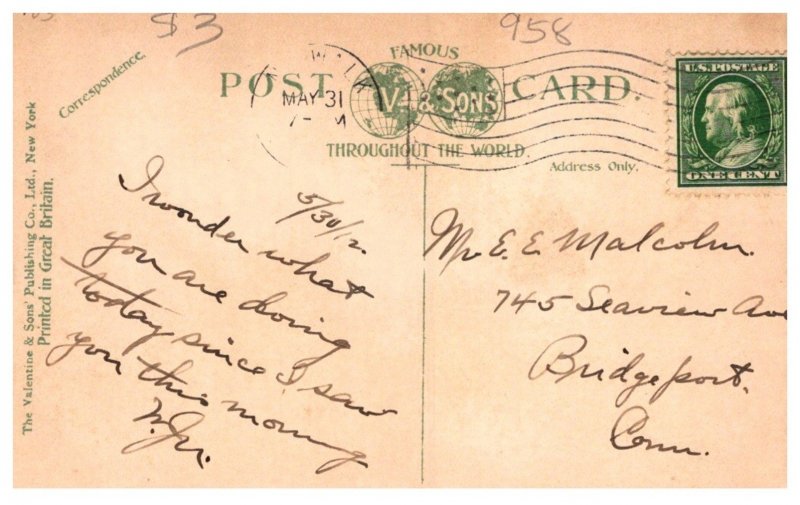 83
958
FAMOUS
POST CARD.
V. & SONS
THROUGHOUT THE WORLD.
MAY 31
Correspondence.
Address Only.
U.S. POSTAGE
ONE CENT
The Valentine & Sons' Publishing Co., Ltd., New York
Printed in Great Britain.
5/30/12.
I wonder what
you are doing
today since I saw
you this morning
Mr E. E. Malcolm.
745 Seaview Ave
Bridgeport.
Conn.